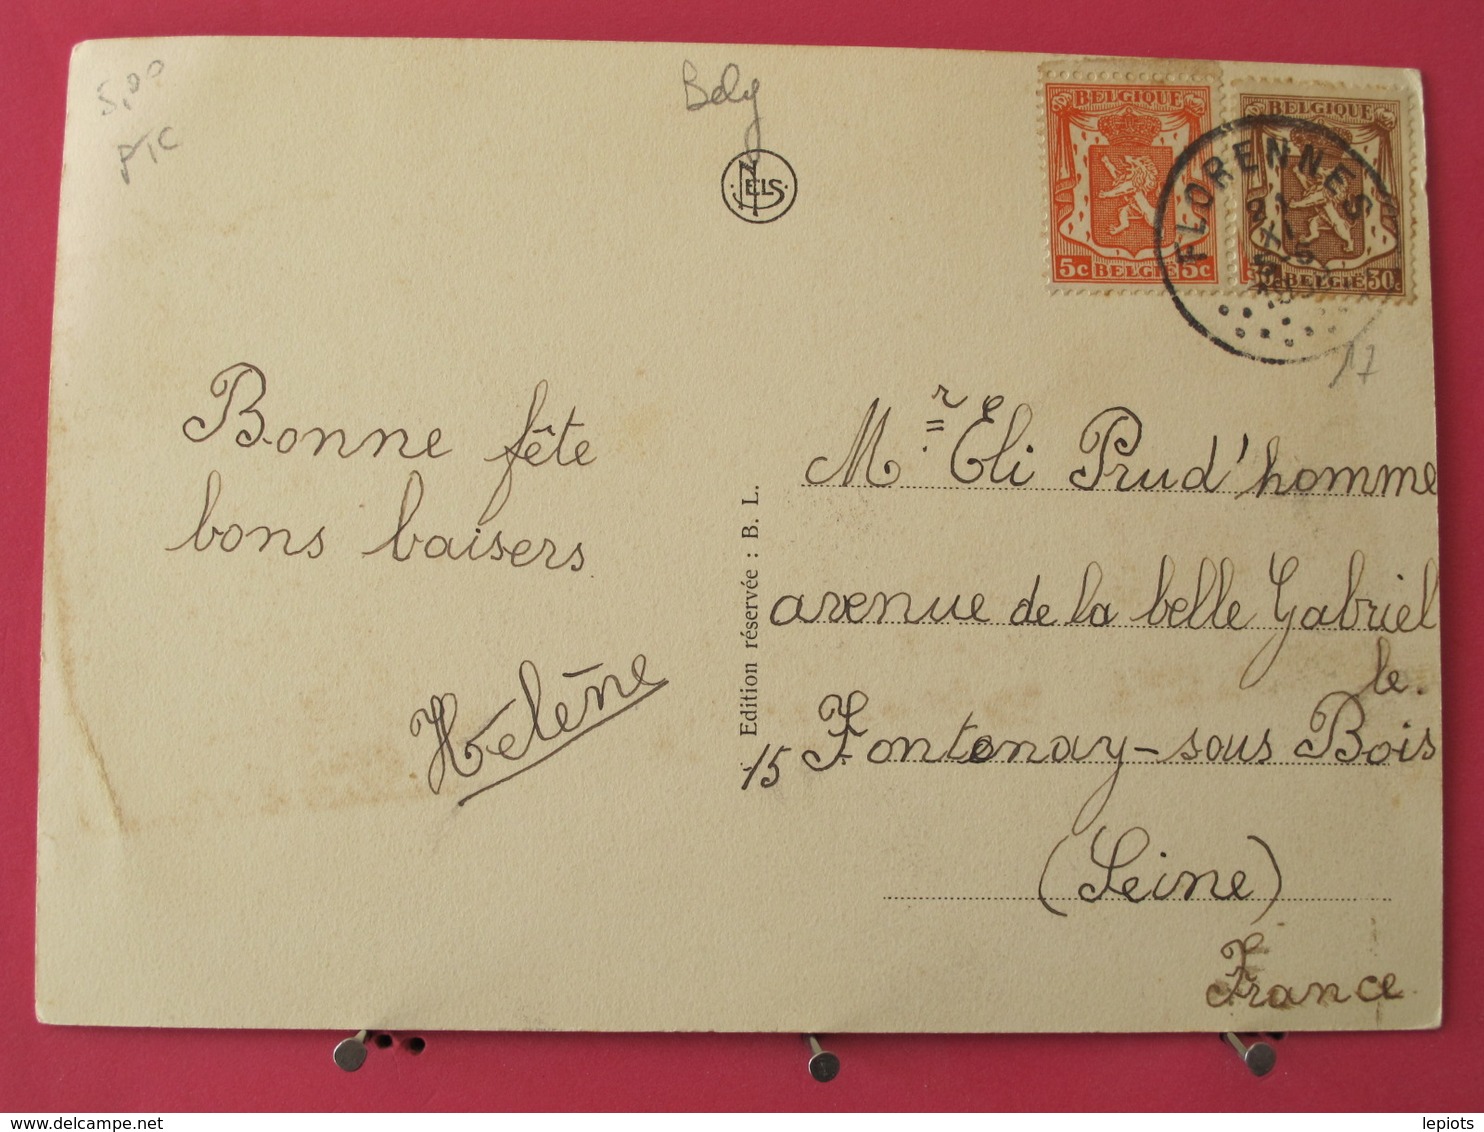 5,00
PTC
Bely
NELS
BELGIQUE
5c BELGIË 5c
BELGIQUE
BELGIË 30c
FLORENNES
17
Bonne fête
bons baisers
Hélène
Edition réservée : B. L.
Mr. Eli Prud'homme
avenue de la belle Gabriel
le.
15 Fontenay-sous Bois
(Seine)
France
lepiots